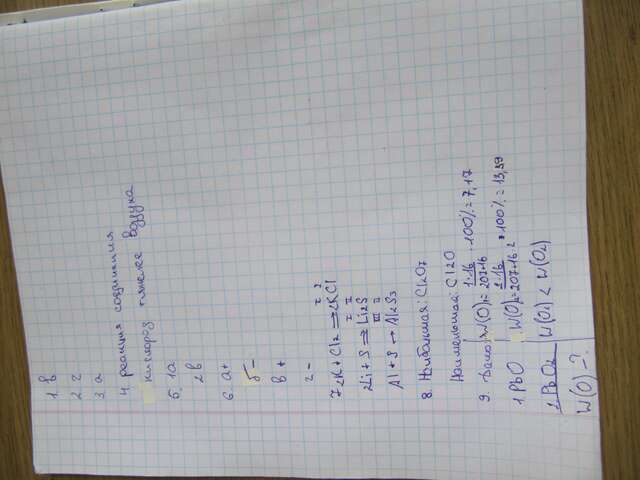 1. в
2. г
3. а
4. реакция соединения
кислород тяжелее воздуха
5. 1а
2в
6. а+
б-
в+
г-
7. 2K + Cl2 ⇒ 2KCl
I I
2Li + S ⇒ Li2S
I II
Al + S → Al2S3
III II
8. Наибольшая: Cl2O7
Наименьшая: Cl2O
9. Дано: W(O)= 1·16 / 207+16 · 100% = 7,17
1. PbO W(O)= 2·16 / 207+16·2 · 100% = 13,39
1. PbO2 W(O1) < W(O2)
W(O) - ?